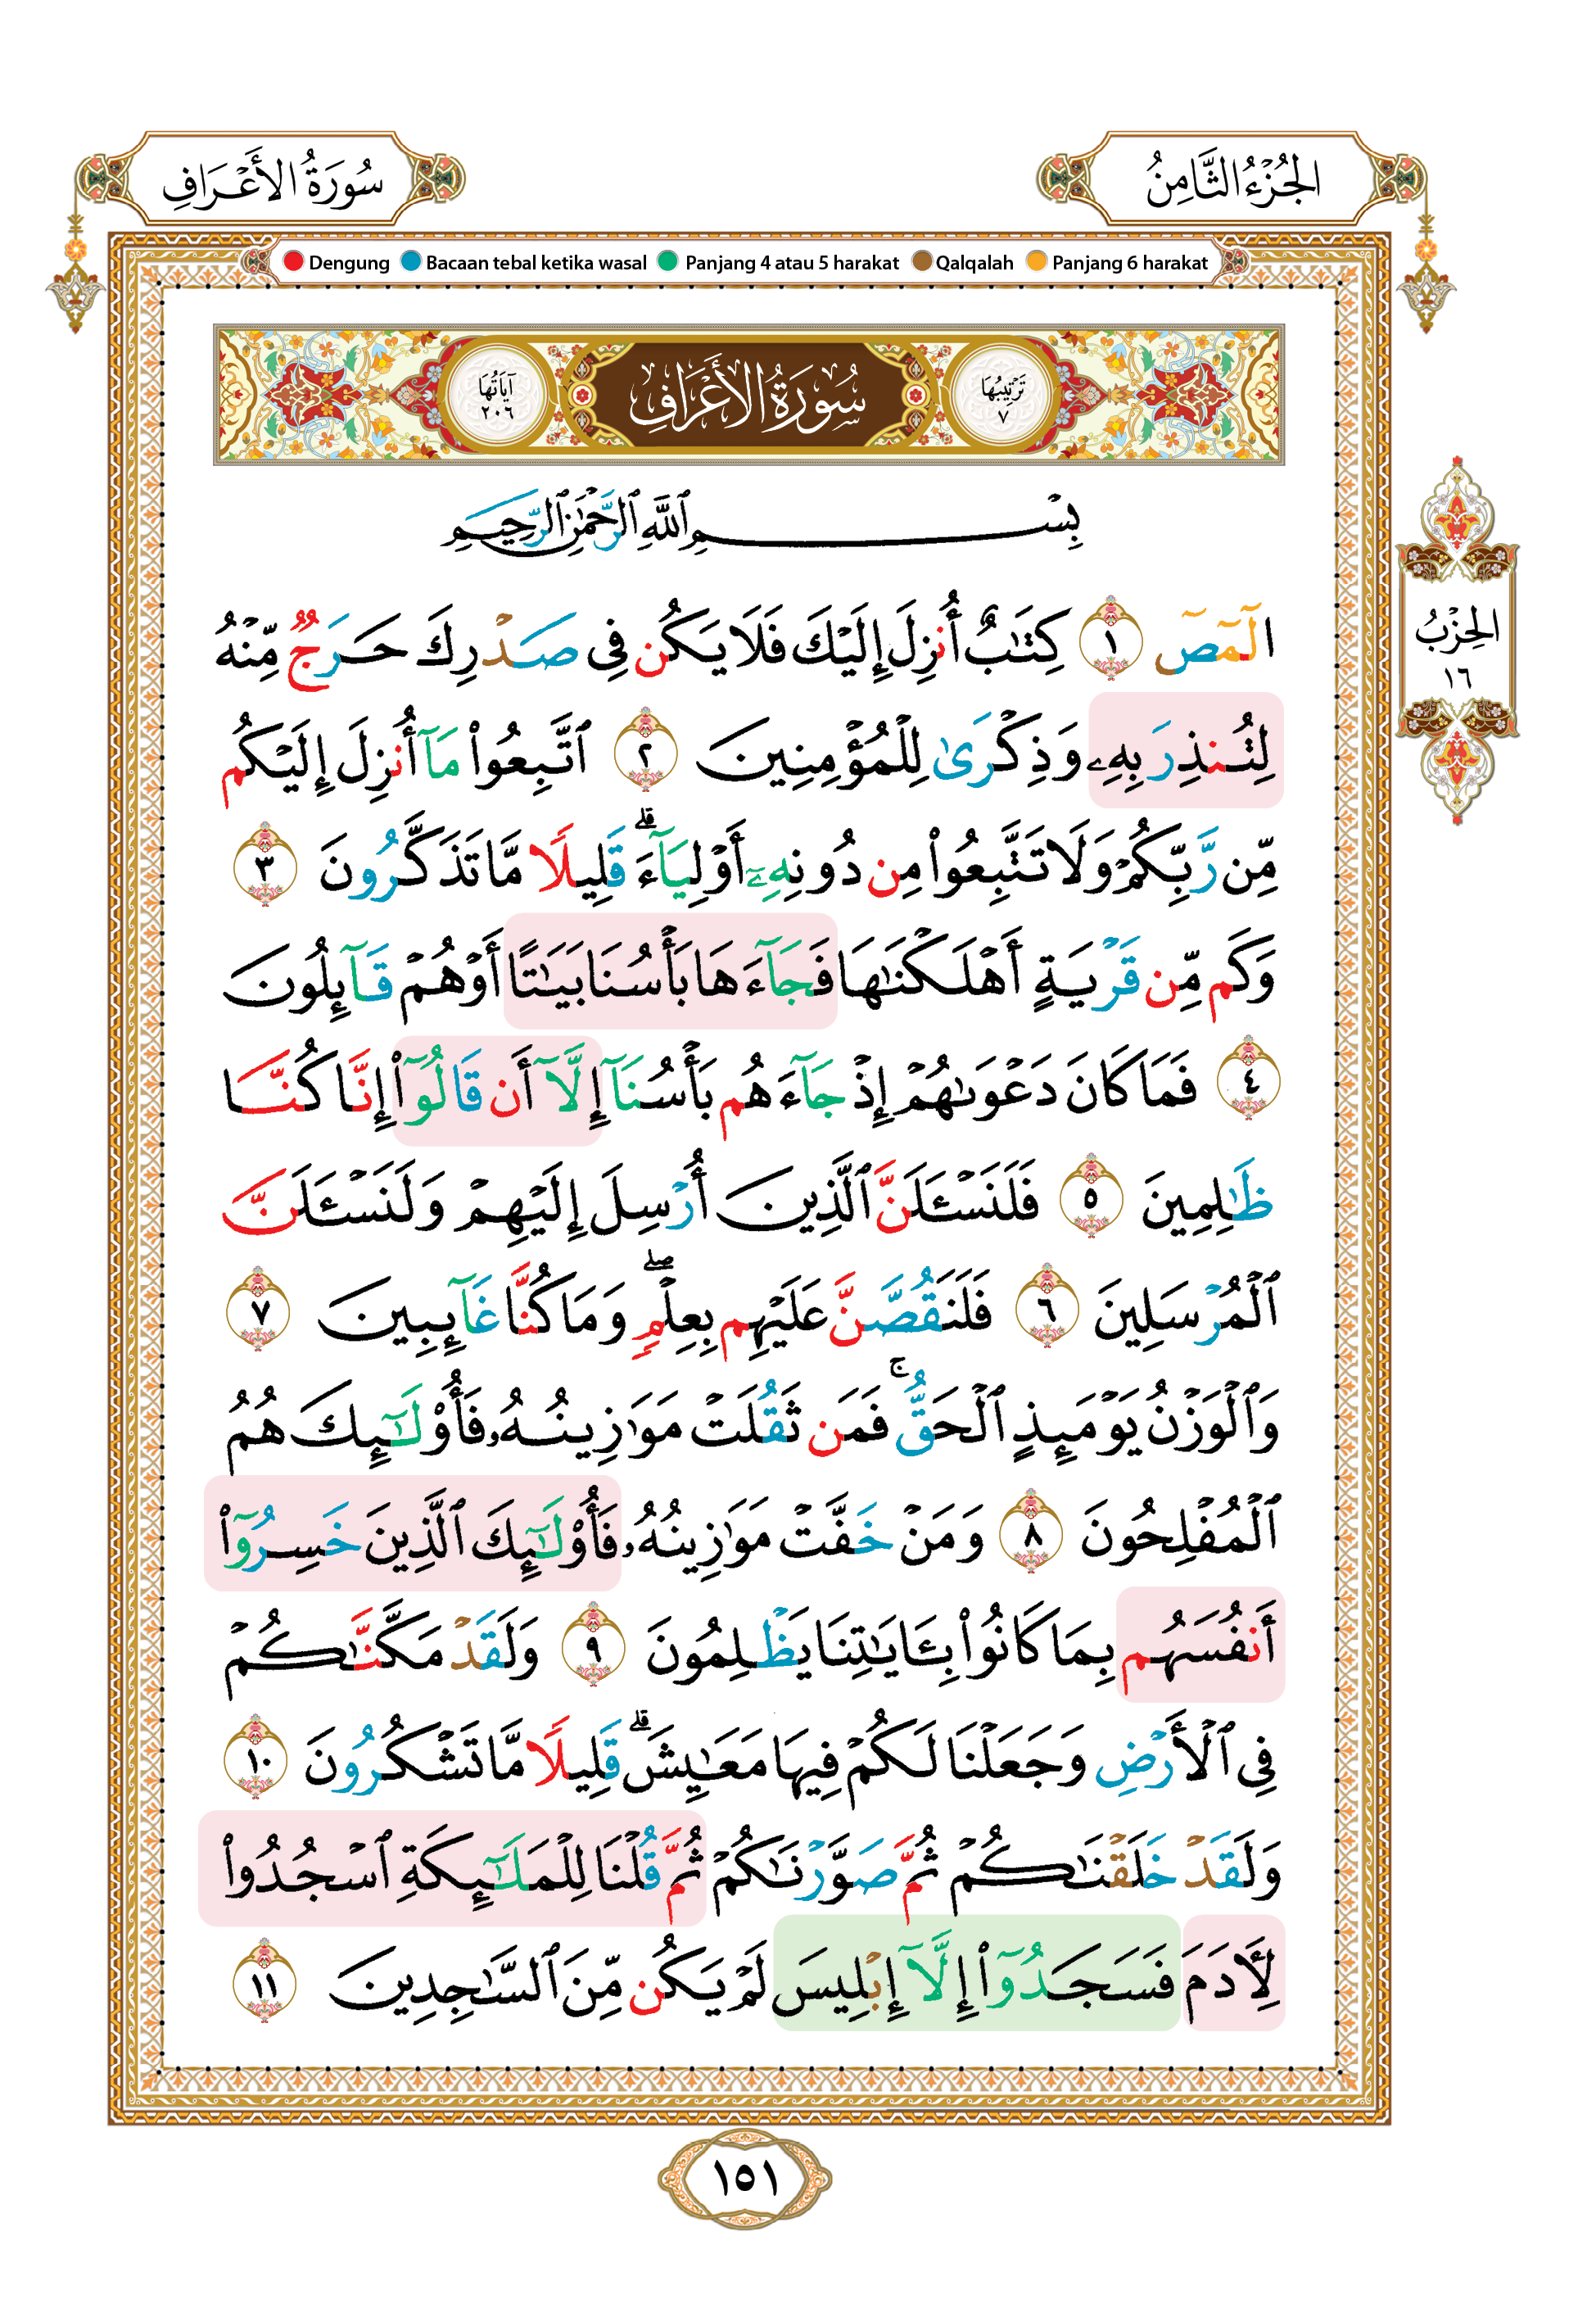 الجُزْءُ الثَّامِنُ
سُورَةُ الأَعْرَافِ
Dengung Bacaan tebal ketika wasal Panjang 4 atau 5 harakat Qalqalah Panjang 6 harakat
تَرْتِيبُهَا ٧
سُورَةُ الأَعْرَافِ
آيَاتُهَا ٢٠٦
بِسْمِ ٱللَّهِ ٱلرَّحْمَٰنِ ٱلرَّحِيمِ
الٓمٓصٓ ١ كِتَٰبٌ أُنزِلَ إِلَيْكَ فَلَا يَكُن فِى صَدْرِكَ حَرَجٌ مِّنْهُ
لِتُنذِرَ بِهِۦ وَذِكْرَىٰ لِلْمُؤْمِنِينَ ٢ ٱتَّبِعُوا۟ مَآ أُنزِلَ إِلَيْكُم
مِّن رَّبِّكُمْ وَلَا تَتَّبِعُوا۟ مِن دُونِهِۦٓ أَوْلِيَآءَ ۗ قَلِيلًا مَّا تَذَكَّرُونَ ٣
وَكَم مِّن قَرْيَةٍ أَهْلَكْنَٰهَا فَجَآءَهَا بَأْسُنَا بَيَٰتًا أَوْ هُمْ قَآئِلُونَ
٤ فَمَا كَانَ دَعْوَىٰهُمْ إِذْ جَآءَهُم بَأْسُنَآ إِلَّآ أَن قَالُوٓا۟ إِنَّا كُنَّا
ظَٰلِمِينَ ٥ فَلَنَسْـَٔلَنَّ ٱلَّذِينَ أُرْسِلَ إِلَيْهِمْ وَلَنَسْـَٔلَنَّ
ٱلْمُرْسَلِينَ ٦ فَلَنَقُصَّنَّ عَلَيْهِم بِعِلْمٍ ۖ وَمَا كُنَّا غَآئِبِينَ ٧
وَٱلْوَزْنُ يَوْمَئِذٍ ٱلْحَقُّ ۚ فَمَن ثَقُلَتْ مَوَٰزِينُهُۥ فَأُو۟لَٰٓئِكَ هُمُ
ٱلْمُفْلِحُونَ ٨ وَمَنْ خَفَّتْ مَوَٰزِينُهُۥ فَأُو۟لَٰٓئِكَ ٱلَّذِينَ خَسِرُوٓا۟
أَنفُسَهُم بِمَا كَانُوا۟ بِـَٔايَٰتِنَا يَظْلِمُونَ ٩ وَلَقَدْ مَكَّنَّٰكُمْ
فِى ٱلْأَرْضِ وَجَعَلْنَا لَكُمْ فِيهَا مَعَٰيِشَ ۗ قَلِيلًا مَّا تَشْكُرُونَ ١٠
وَلَقَدْ خَلَقْنَٰكُمْ ثُمَّ صَوَّرْنَٰكُمْ ثُمَّ قُلْنَا لِلْمَلَٰٓئِكَةِ ٱسْجُدُوا۟
لِـَٔادَمَ فَسَجَدُوٓا۟ إِلَّآ إِبْلِيسَ لَمْ يَكُن مِّنَ ٱلسَّٰجِدِينَ ١١
الحِزْبُ
١٦
١٥١